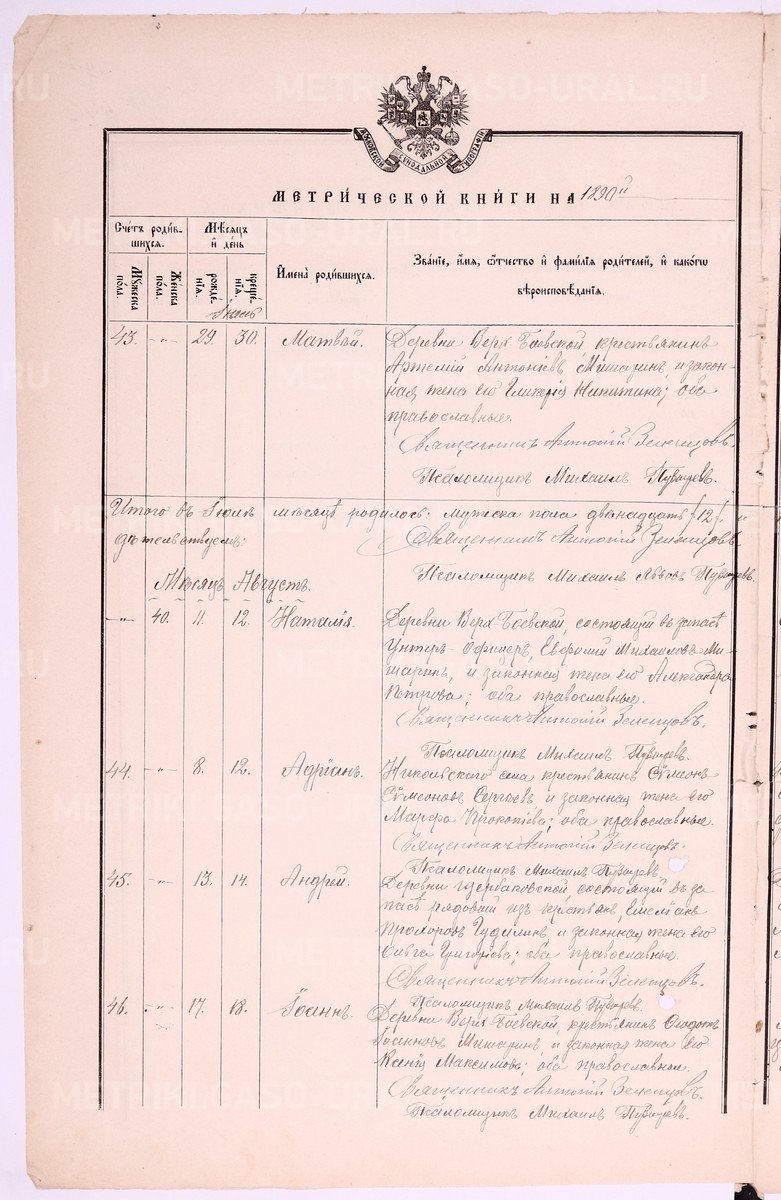 METRIKI.GASO-URAL.RU
МОСКОВСКОЙ СѴНОДАЛЬНОЙ ТИПОГРАФІИ
МЕТРИ́ЧЕСКОЙ КНИ́ГИ НА 1890й
Сче́тъ роди́в-
шихся.
Мѣ́сяцъ
и҆ де́нь
И҆мена̀ роди́вшихся.
Зва́нїе, и҆́мя, ѻ҆́тчество и҆ фами́лїя роди́телей, и҆ како́гѡ
вѣроисповѣ́данїя.
Мꙋ́жеска
по́ла.
Же́нска
по́ла.
рожде́-
нїя.
креще́-
нїя.
Іюль
43. -"- 29. 30. Матвѣй. Деревни Верх Боевской крестьянинъ
Артемій Антоніевъ Мишаринъ, и закон-
ная жена его Гликерія Никитина; оба
православные.
Священникъ Антоній Зеленцовъ.
Псаломщикъ Михаилъ
Итого въ Іюлѣ мѣсяцѣ родилось: мужеска пола двѣнадцать /12/. и
Священникъ Антоній Зеленцовъ
Псаломщикъ Михаилъ Львовъ
Мѣсяцъ Августъ.
-"- 40. 11. 12. Наталія. Деревни Верх-Боевской, состоящій въ запасѣ
Унтеръ-Офицеръ, Евфимій Михаиловъ Ми-
шаринъ, и законная жена его Александра
Петрова; оба православные.
Священникъ Антоній Зеленцовъ.
Псаломщикъ Михаилъ
44. -"- 8. 12. Адріанъ. Никольскаго села крестьянинъ Сѵмеонъ
Сѵмеоновъ Сергѣевъ и законная жена его
Марфа Прокопіева; оба православные.
Священникъ Антоній Зеленцовъ.
Псаломщикъ Михаилъ
45. -"- 13. 14. Андрей. Деревни Щербаковской состоящій въ за-
пасѣ рядовой изъ крестьянъ, Емеліанъ
Прохоровъ Гудилинъ и законная жена его
Ольга Григоріева; оба православные.
Священникъ Антоній Зеленцовъ.
Псаломщикъ Михаилъ
46. -"- 17. 18. Іоаннъ. Деревни Верх Боевской, крестьянинъ Ѳеодотъ
Іоанновъ Мишаринъ и законная жена его
Ксенія Максимова; оба православные.
Священникъ Антоній Зеленцовъ.
Псаломщикъ Михаилъ